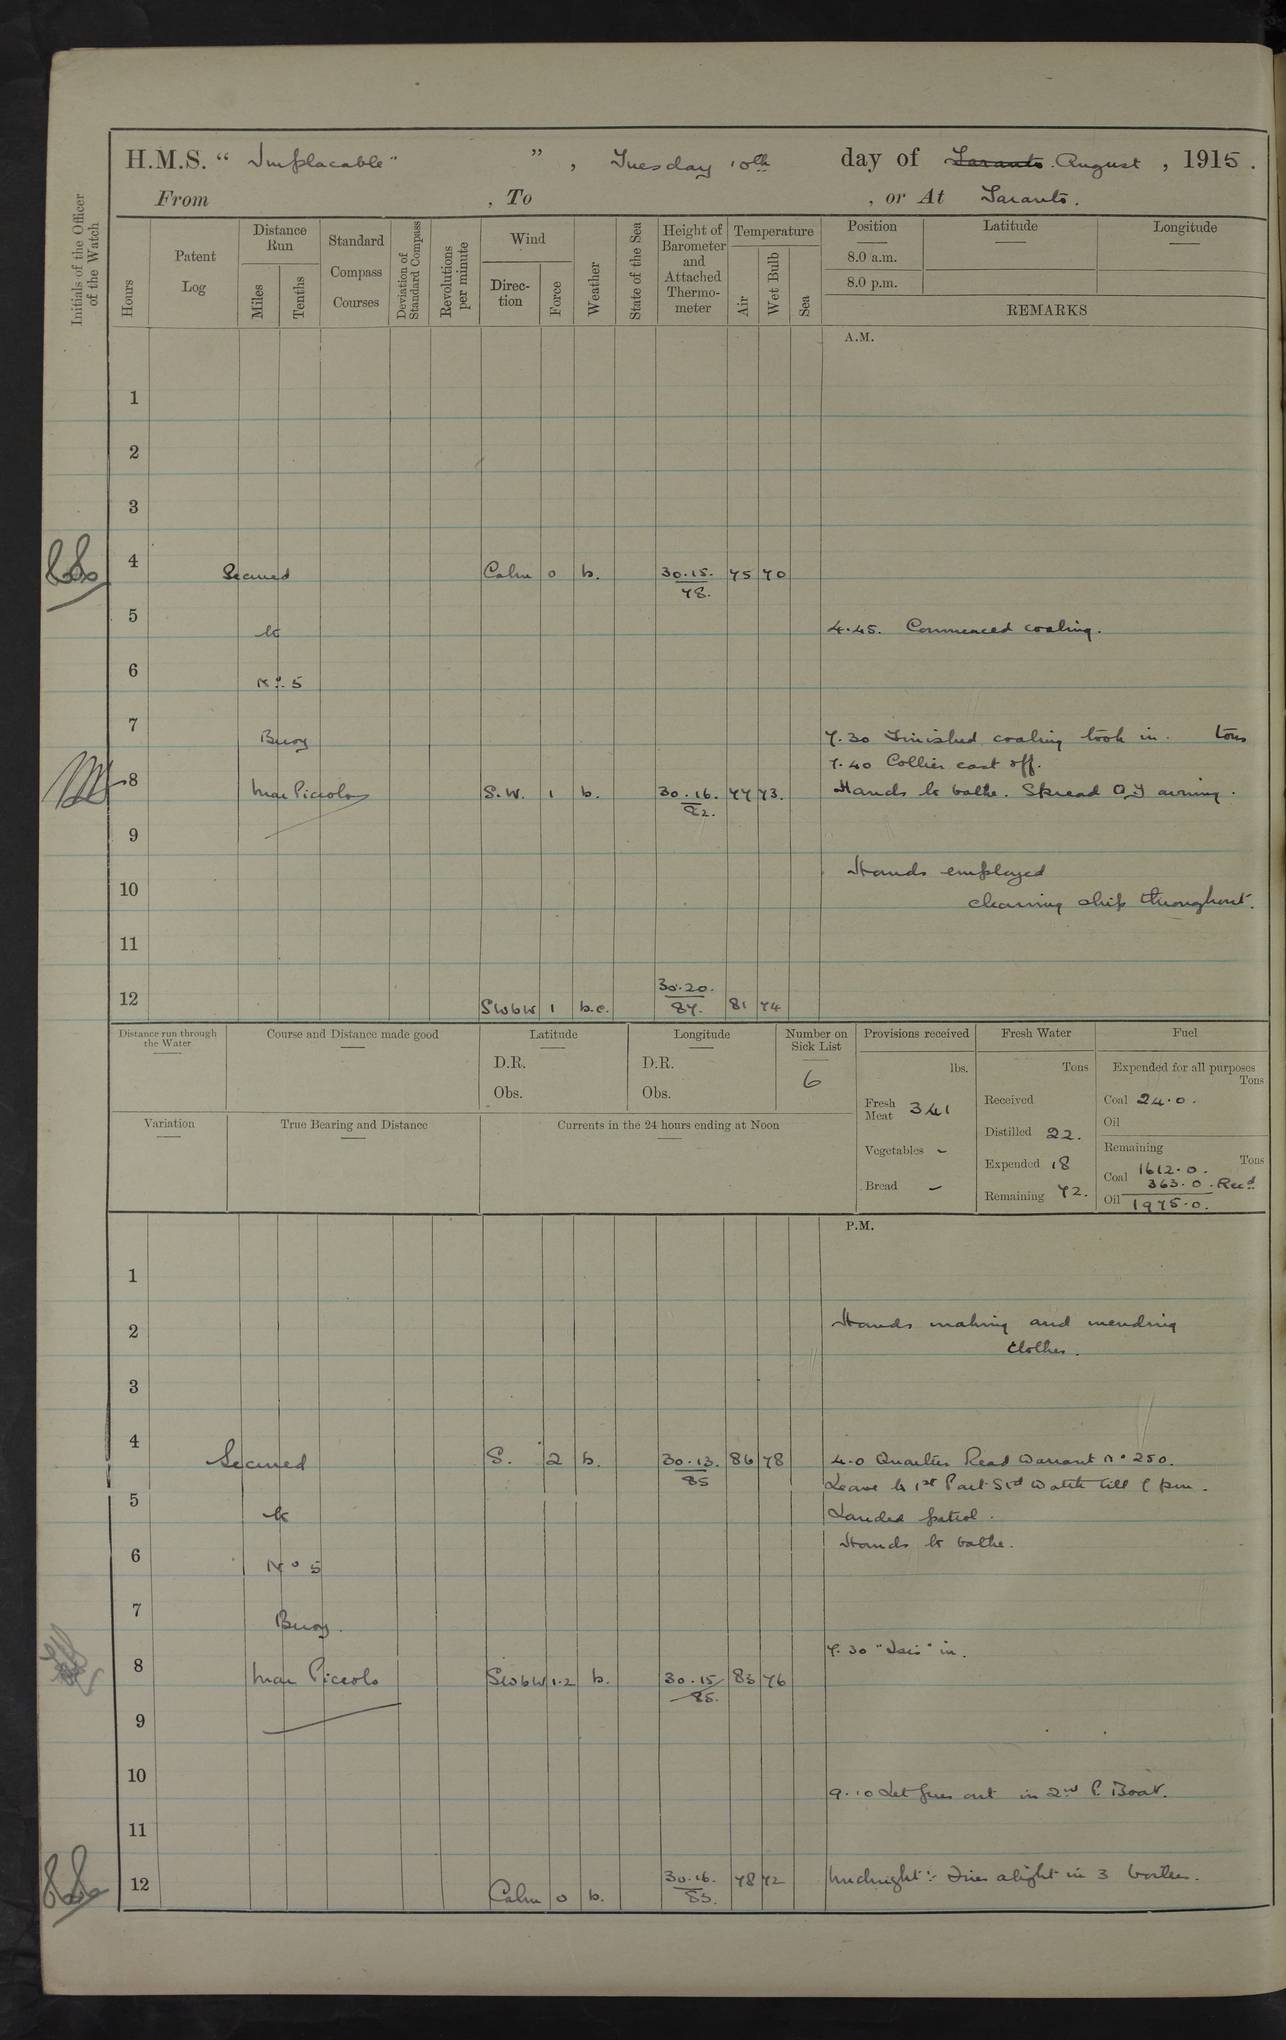 H.M.S. " Implacable " ", Tuesday 10th day of Taranto August, 1915.
From , To , or At Taranto.
Initials of the Officer of the Watch
Hours
Patent Log
Distance Run
Miles
Tenths
Standard Compass Courses
Deviation of Standard Compass
Revolutions per minute
Wind
Direction
Force
Weather
State of the Sea
Height of Barometer and Attached Thermometer
Temperature
Air
Wet Bulb
Sea
Position Latitude Longitude
8.0 a.m.
8.0 p.m.
REMARKS
A.M.
1
2
3
4 Secured Calm 0 b. 30.15. 75 70
78.
5 to 4.45. Commenced coaling.
6 No. 5
7 Buoy 7.30 Finished coaling took in. tons
7.40 Collier cast off.
8 Mar Piccolo S.W. 1 b. 30.16. 77 73. Hands to bathe. Spread Q.D awning.
82.
9
Hands employed
10 cleaning ship throughout.
11
12 SWbW 1 b.c. 30.20. 81 74
87.
Distance run through the Water
Course and Distance made good
Latitude
D.R.
Obs.
Longitude
D.R.
Obs.
Number on Sick List
6
Variation
True Bearing and Distance
Currents in the 24 hours ending at Noon
Provisions received
lbs.
Fresh Meat 341
Vegetables –
Bread –
Fresh Water
Tons
Received
Distilled 22.
Expended 18
Remaining 72.
Fuel
Expended for all purposes
Tons
Coal 24.0.
Oil
Remaining
Tons
Coal 1612.0.
363.0. Recd
Oil 1975.0.
P.M.
1
2 Hands making and mending
clothes.
3
4 Secured S. 2 b. 30.13. 86 78 4.0 Quarters Read Warrant No 250.
85 Leave to 1st Part Watch till pm.
5 to Landed patrol.
6 No 5 Hands to bathe.
7 Buoy.
7.30 "Isis" in.
8 Mar Piccolo SWbW 1.2 b. 30.15 83 76
85.
9
10 9.10 Let fires out in 2nd P. Boat.
11
12 Calm 0 b. 30.16. 78 72 Midnight:- Fires alight in 3 boilers.
85.